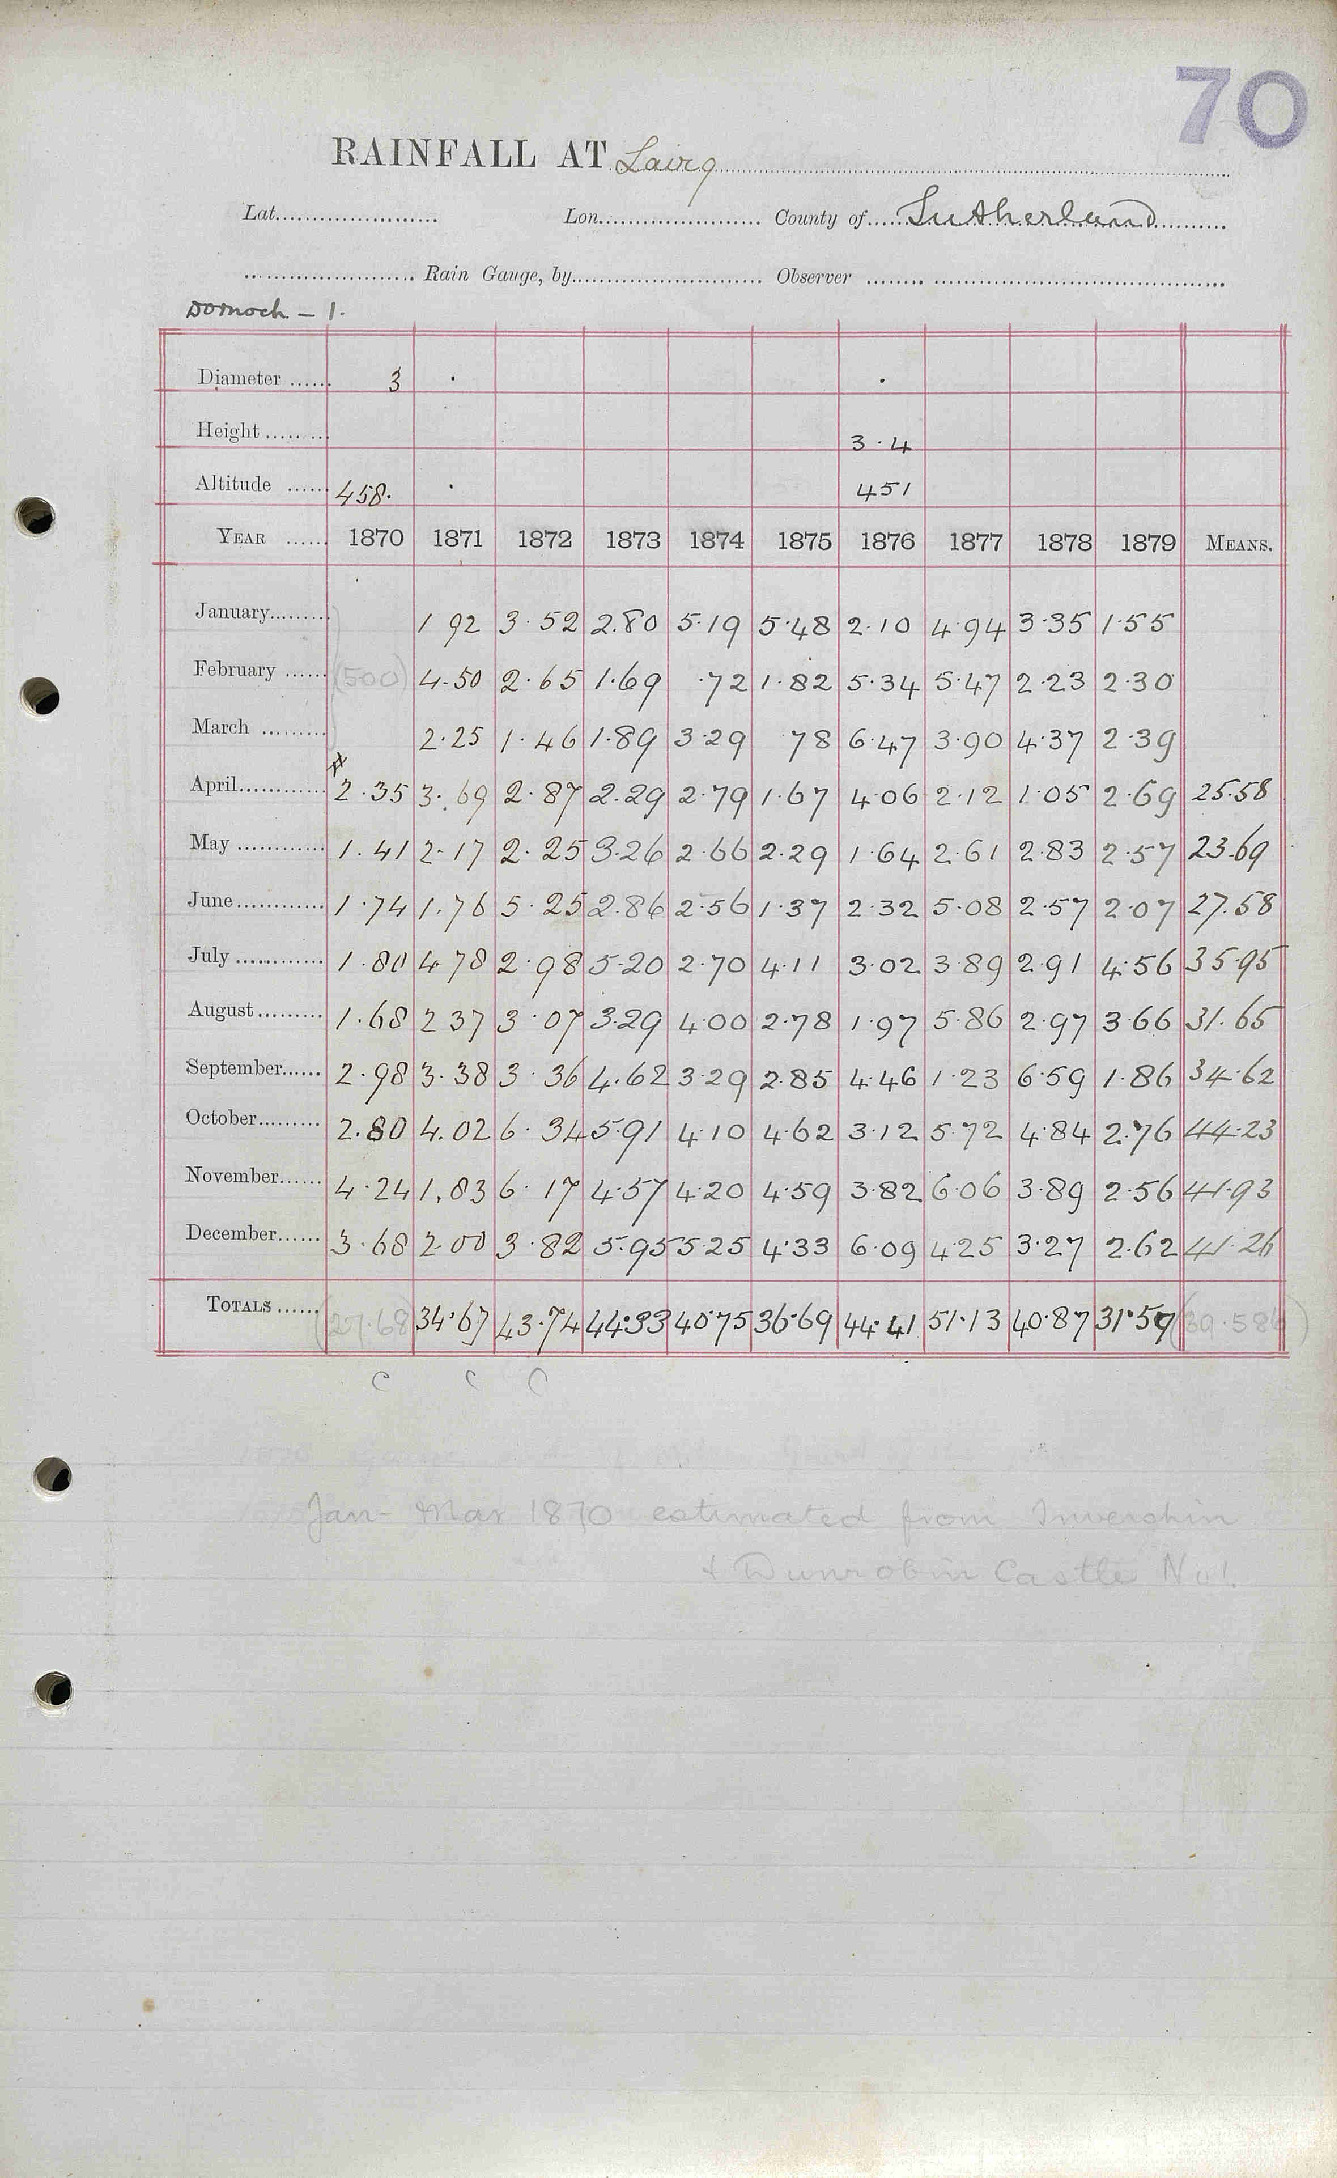 70
RAINFALL AT Lairg
Lat. Lon. County of Sutherland
Rain Gauge, by Observer
Dornoch - 1.
Diameter 3 . .
Height 3.4
Altitude 458. . 451
YEAR 1870 1871 1872 1873 1874 1875 1876 1877 1878 1879 MEANS.
January 1 92 3.52 2.80 5.19 5.48 2.10 4.94 3.35 1.55
February (500) 4.50 2.65 1.69 .72 1.82 5.34 5.47 2.23 2.30
March 2.25 1.46 1.89 3.29 78 6.47 3.90 4.37 2.39
April 2.35 3.69 2.87 2.29 2.79 1.67 4.06 2.12 1.05 2.69 25.58
May 1.41 2.17 2.25 3.26 2.66 2.29 1.64 2.61 2.83 2.57 23.69
June 1.74 1.76 5.25 2.86 2.56 1.37 2.32 5.08 2.57 2.07 27.58
July 1.80 4 78 2.98 5.20 2.70 4.11 3.02 3.89 2.91 4.56 35.95
August 1.68 2 37 3.07 3.29 4.00 2.78 1.97 5.86 2.97 3.66 31.65
September 2.98 3.38 3.36 4.62 3.29 2.85 4.46 1.23 6.59 1.86 34.62
October 2.80 4.02 6.34 5.91 4.10 4.62 3.12 5.72 4.84 2.76 44.23
November 4.24 1.83 6.17 4.57 4.20 4.59 3.82 6.06 3.89 2.56 41.93
December 3.68 2.00 3.82 5.95 5.25 4.33 6.09 4.25 3.27 2.62 41.26
TOTALS (27.68) 34.67 43.74 44.33 40.75 36.69 44.41 51.13 40.87 31.59 (39.586)
C C C
Jan - Mar 1870 estimated from Invershin
& Dunrobin Castle No 1.